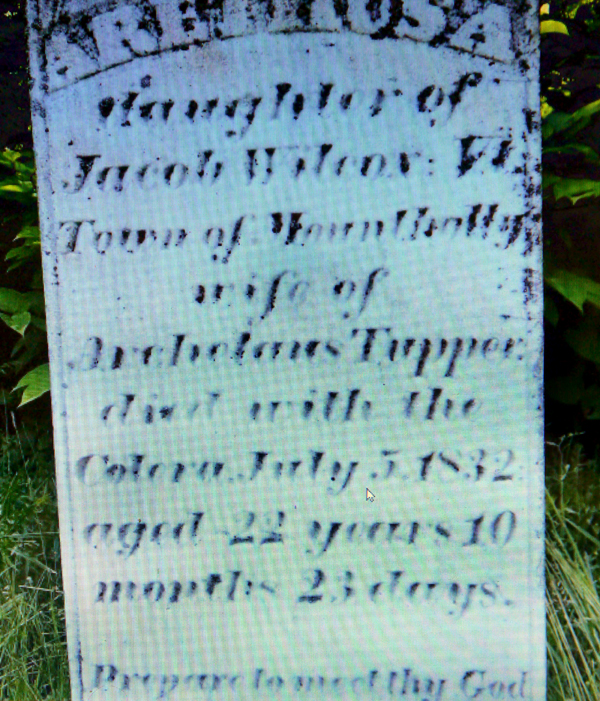 daughter of
Jacob Wilcox: Vt.
Town of Mountholly
wife of
Archelaus Tupper
died with the
Colera July 5. 1832
aged 22 years 10
months 23 days.
Prepare to meet thy God